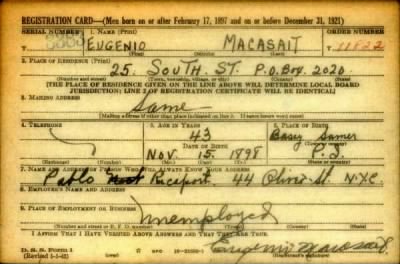 REGISTRATION CARD—(Men born on or after February 17, 1897 and on or before December 31, 1921)
SERIAL NUMBER 1. NAME (Print) ORDER NUMBER
EUGENIO MACASAIT
(First) (Middle) (Last)
2. PLACE OF RESIDENCE (Print)
25 SOUTH ST. P.O. BOX. 2020
(Number and street) (Town, township, village, or city) (County) (State)
[THE PLACE OF RESIDENCE GIVEN ON THE LINE ABOVE WILL DETERMINE LOCAL BOARD
JURISDICTION; LINE 2 OF REGISTRATION CERTIFICATE WILL BE IDENTICAL]
3. MAILING ADDRESS
Same
4. TELEPHONE 5. AGE IN YEARS 6. PLACE OF BIRTH
43 Basey Samar
DATE OF BIRTH
NOV. 15. 1898 P.I.
(Mo.) (Day) (Yr.) (State or country)
7. NAME AND ADDRESS OF PERSON WHO WILL ALWAYS KNOW YOUR ADDRESS
Pablo Ricaport 44 Oliver St. N.Y.C.
8. EMPLOYER'S NAME AND ADDRESS
Unemployed
9. PLACE OF EMPLOYMENT OR BUSINESS
(Number and street or R. F. D. number) (Town) (County) (State)
I AFFIRM THAT I HAVE VERIFIED ABOVE ANSWERS AND THAT THEY ARE TRUE.
D. S. S. Form 1
(Revised 1-1-42) Eugenio Macasait